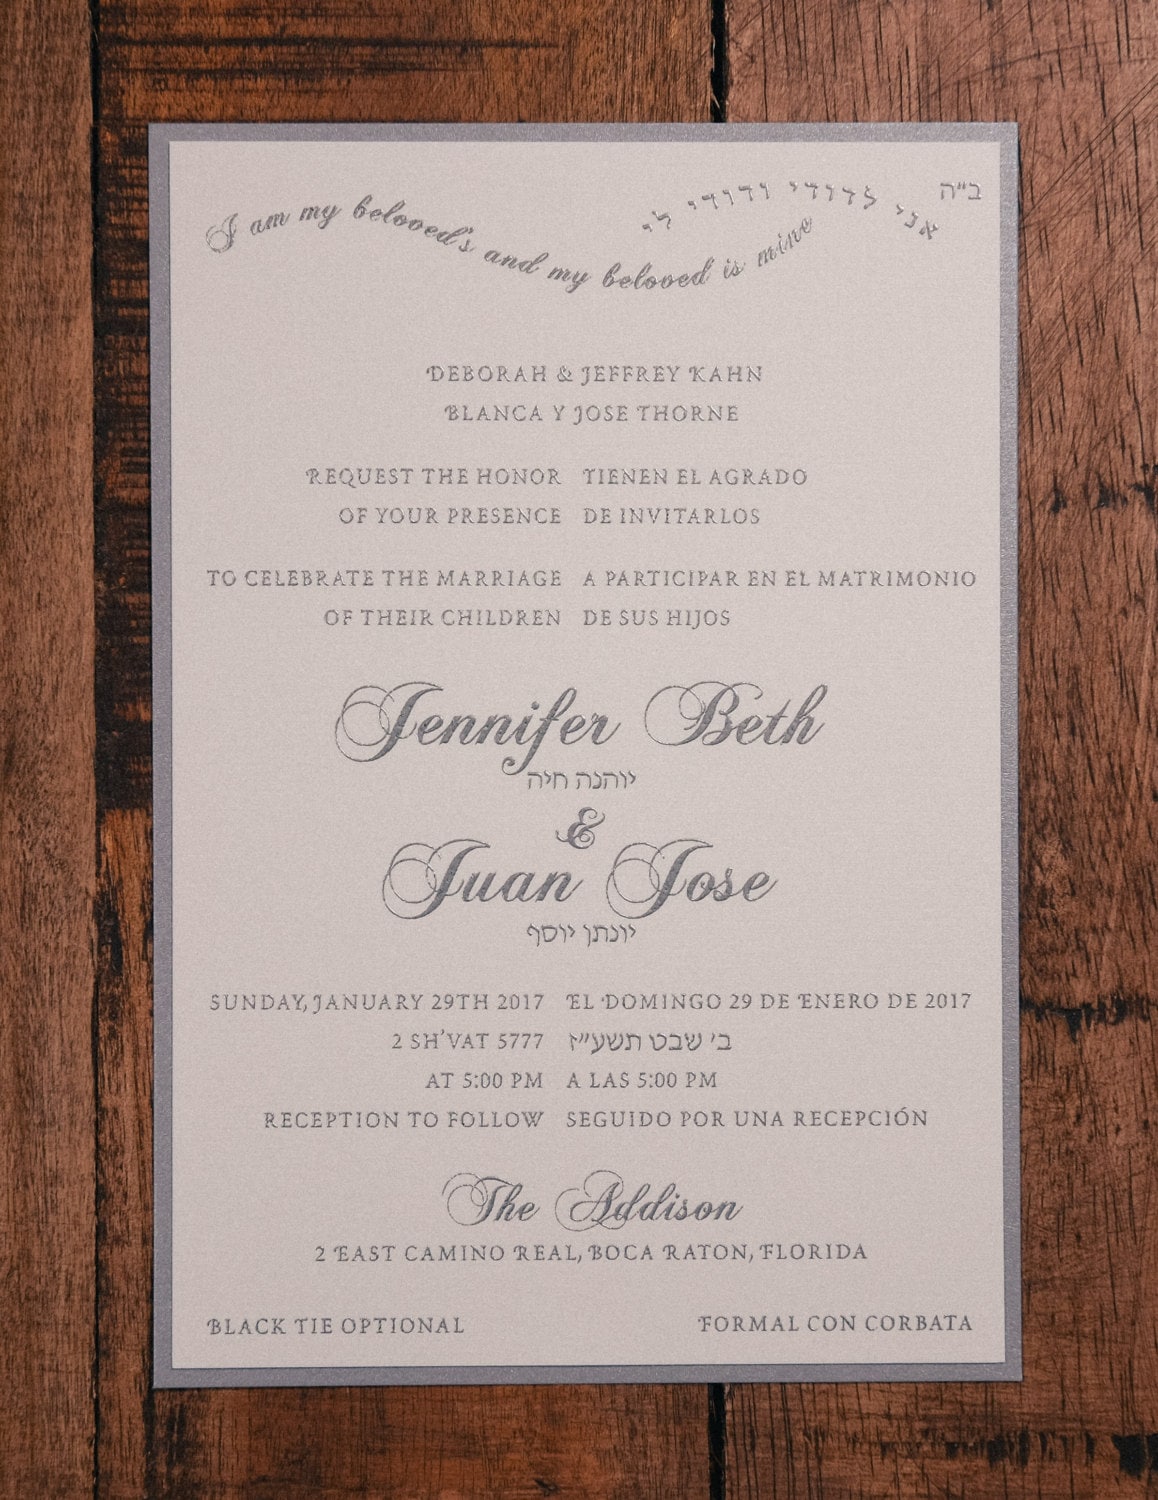 ב"ה
I am my beloved's and my beloved is mine
אני לדודי ודודי לי
DEBORAH & JEFFREY KAHN
BLANCA Y JOSE THORNE
REQUEST THE HONOR TIENEN EL AGRADO
OF YOUR PRESENCE DE INVITARLOS
TO CELEBRATE THE MARRIAGE A PARTICIPAR EN EL MATRIMONIO
OF THEIR CHILDREN DE SUS HIJOS
Jennifer Beth
יוהנה חיה
&
Juan Jose
יונתן יוסף
SUNDAY, JANUARY 29TH 2017 EL DOMINGO 29 DE ENERO DE 2017
2 SH'VAT 5777 ב' שבט תשע"ז
AT 5:00 PM A LAS 5:00 PM
RECEPTION TO FOLLOW SEGUIDO POR UNA RECEPCIÓN
The Addison
2 EAST CAMINO REAL, BOCA RATON, FLORIDA
BLACK TIE OPTIONAL FORMAL CON CORBATA